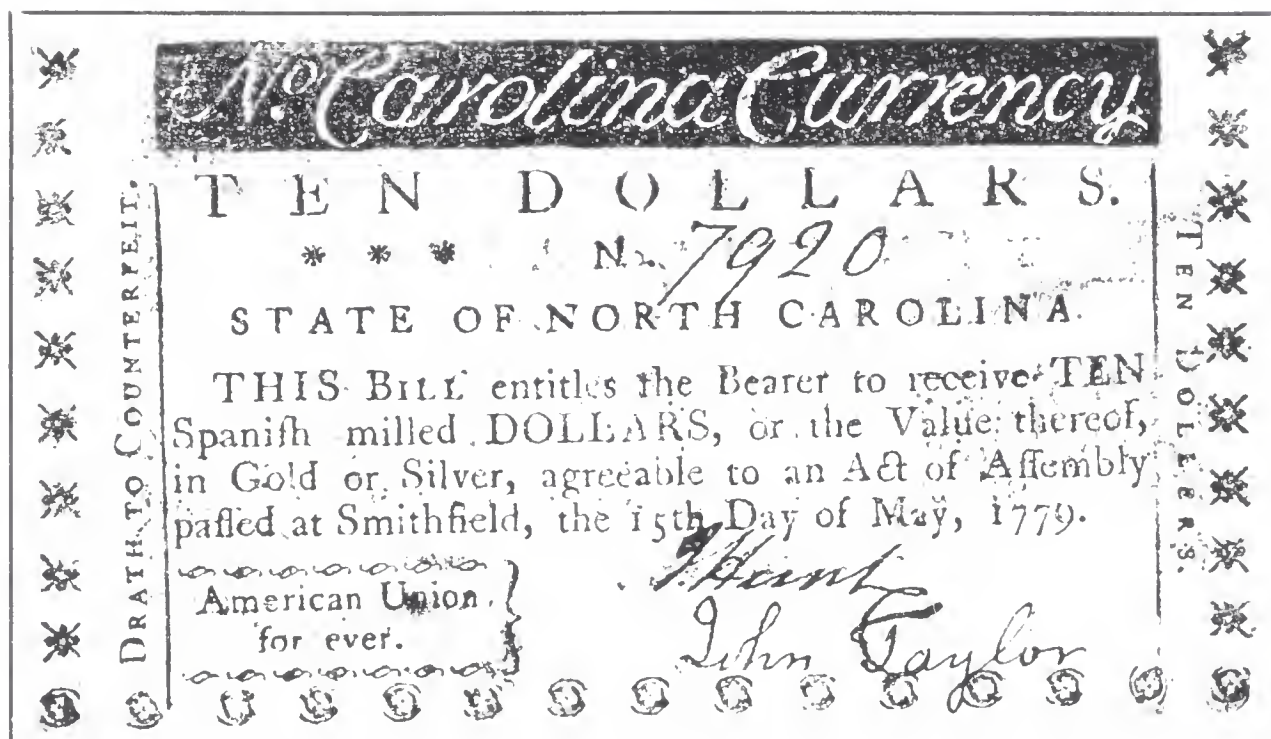 No. Carolina Currency
TEN DOLLARS.
* * * No. 7920
STATE OF NORTH CAROLINA.
THIS BILL entitles the Bearer to receive TEN
Spaniſh milled DOLLARS, or the Value thereof,
in Gold or Silver, agreeable to an Act of Aſſembly
paſſed at Smithfield, the 15th Day of May, 1779.
American Union
for ever.
Hunt
John Taylor
DEATH TO COUNTERFEIT.
TEN DOLLERS.